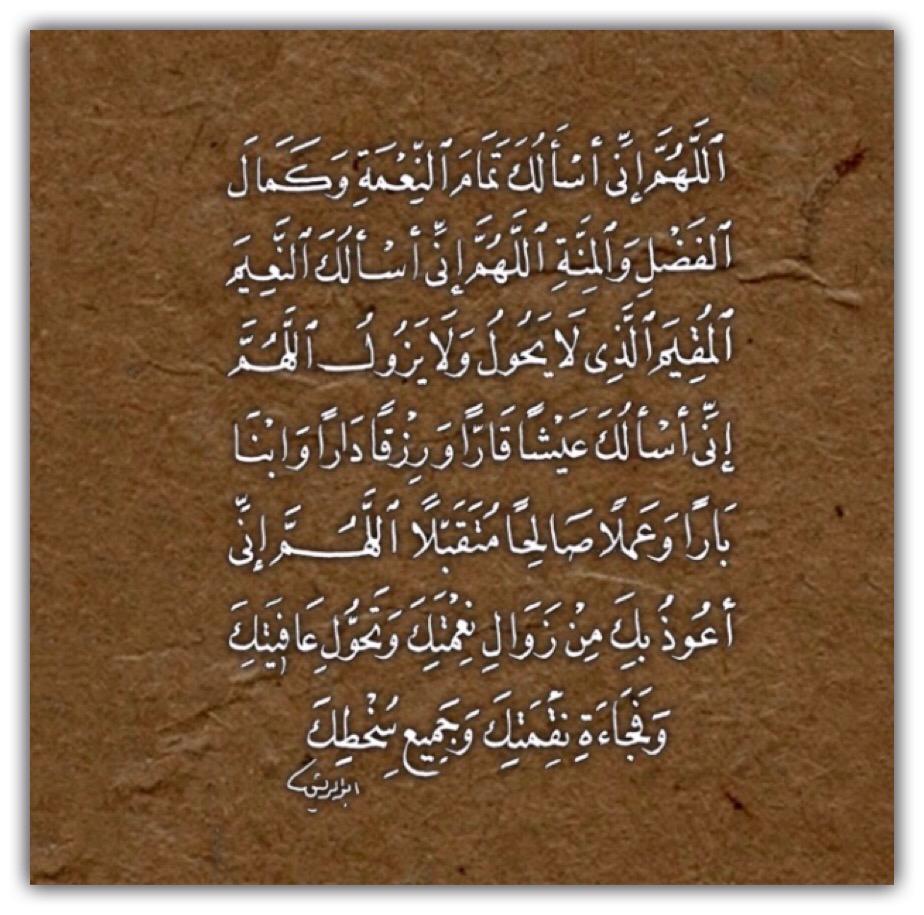 ٱللَّهُمَّ إِنِّى أَسْأَلُكَ تَمَامَ ٱلنِّعْمَةِ وَكَمَالَ
ٱلفَضْلِ وَٱلمِنَّةِ ٱللَّهُمَّ إِنِّى أَسْأَلُكَ ٱلنَّعِيمَ
ٱلمُقِيمَ ٱلَّذِى لَا يَحُولُ وَلَا يَزُولُ ٱللَّهُمَّ
إِنِّى أَسْأَلُكَ عَيْشًا قَارًّا وَرِزْقًا دَارًا وَابْنَا
بَارًا وَعَمَلًا صَالِحًا مُتَقَبَّلًا ٱللَّهُمَّ إِنِّى
أَعُوذُ بِكَ مِنْ زَوَالِ نِعْمَتِكَ وَتَحَوُّلِ عَافِيَتِكَ
وَفَجَاءَةِ نِقْمَتِكَ وَجَمِيعِ سُخْطِكَ